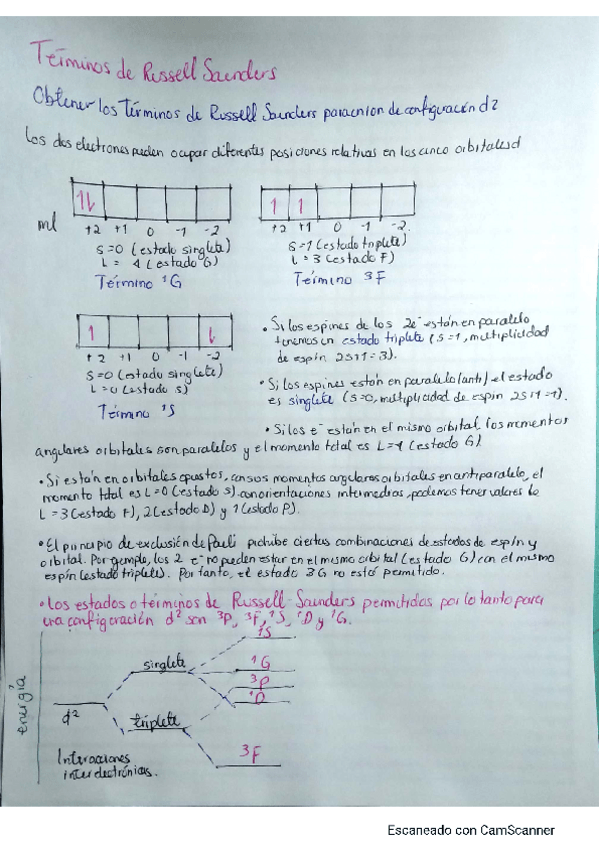 Términos de Russell Saunders
Obtener los Términos de Russell Saunders para un ion de configuración d2
Los dos electrones pueden ocupar diferentes posiciones relativas en los cinco orbitales d
1⇂
1 1
ml +2 +1 0 -1 -2
+2 +1 0 -1 -2
S=0 (estado singlete)
L = 4 (estado G)
Término ¹G
S=1 (estado triplete)
L = 3 (estado F)
Término ³F
1 ⇂
+2 +1 0 -1 -2
S=0 (estado singlete)
L=0 (estado s)
Término ¹S
• Si los espines de los 2e⁻ están en paralelo
tenemos un estado triplete (s=1, multiplicidad
de espín 2s+1=3).
• Si los espines están en paralelo (anti) el estado
es singlete (s=0, multiplicidad de espín 2s+1=1).
• Si los e⁻ están en el mismo orbital los momentos
angulares orbitales son paralelos y el momento total es L=4 (estado G)
• Si están en orbitales opuestos, con sus momentos angulares orbitales en antiparalelo, el
momento total es L=0 (estado s) con orientaciones intermedias, podemos tener valores de
L = 3 (estado F), 2 (estado D) y 1 (estado P).
• El principio de exclusión de Pauli prohibe ciertas combinaciones de estados de espín y
orbital. Por ejemplo, los 2 e⁻ no pueden estar en el mismo orbital (estado G) con el mismo
espín (estado triplete). Por tanto, el estado 3G no está permitido.
• Los estados o términos de Russell-Saunders permitidos por lo tanto para
una configuración d² son ³P, ³F, ¹S, ¹D y ¹G.
energía
¹S
singlete
¹G
³P
¹D
d²
triplete
³F
Interacciones
interelectrónicas.
Escaneado con CamScanner